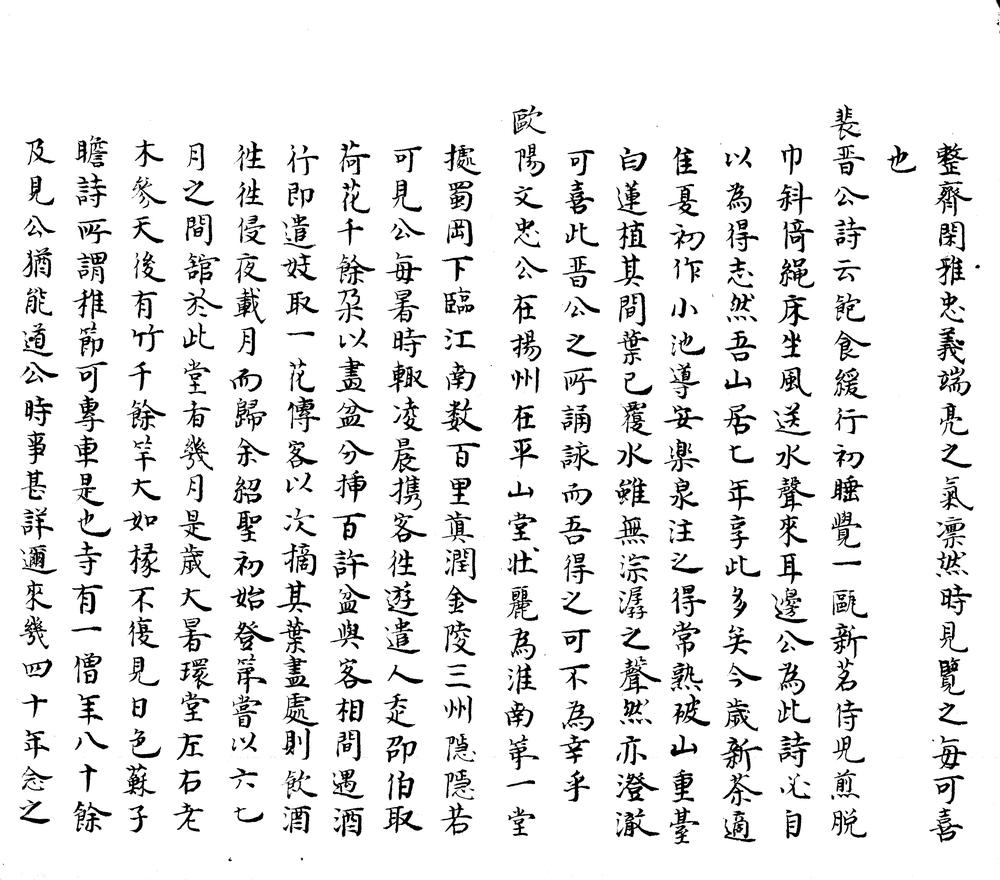 整齊閑雅忠義端亮之氣凛然時見覽之每可喜
也
裴晋公詩云飽食緩行初睡覺一甌新茗侍児煎脱
巾斜倚繩床坐風送水聲來耳邊公為此詩必自
以為得志然吾山居七年享此多矣今歲新茶適
佳夏初作小池導安樂泉注之得常熟破山重臺
白蓮植其間葉已覆水雖無淙潺之聲然亦澄澈
可喜此晋公之所誦詠而吾得之可不為幸乎
歐陽文忠公在揚州在平山堂壮麗為淮南第一堂
據蜀岡下臨江南数百里真潤金陵三州隠隠若
可見公每暑時輙凌晨携客徃遊遣人走邵伯取
荷花千餘朶以畫盆分揷百許盆與客相間遇酒
行即遣妓取一花傳客以次摘其葉盡處則飲酒
徃徃侵夜載月而歸余紹聖初始登第嘗以六七
月之間舘於此堂者幾月是歲大暑環堂左右老
木參天後有竹千餘竿大如椽不復見日色蘇子
瞻詩所謂稚節可專車是也寺有一僧年八十餘
及見公猶能道公時事甚詳邇來幾四十年念之